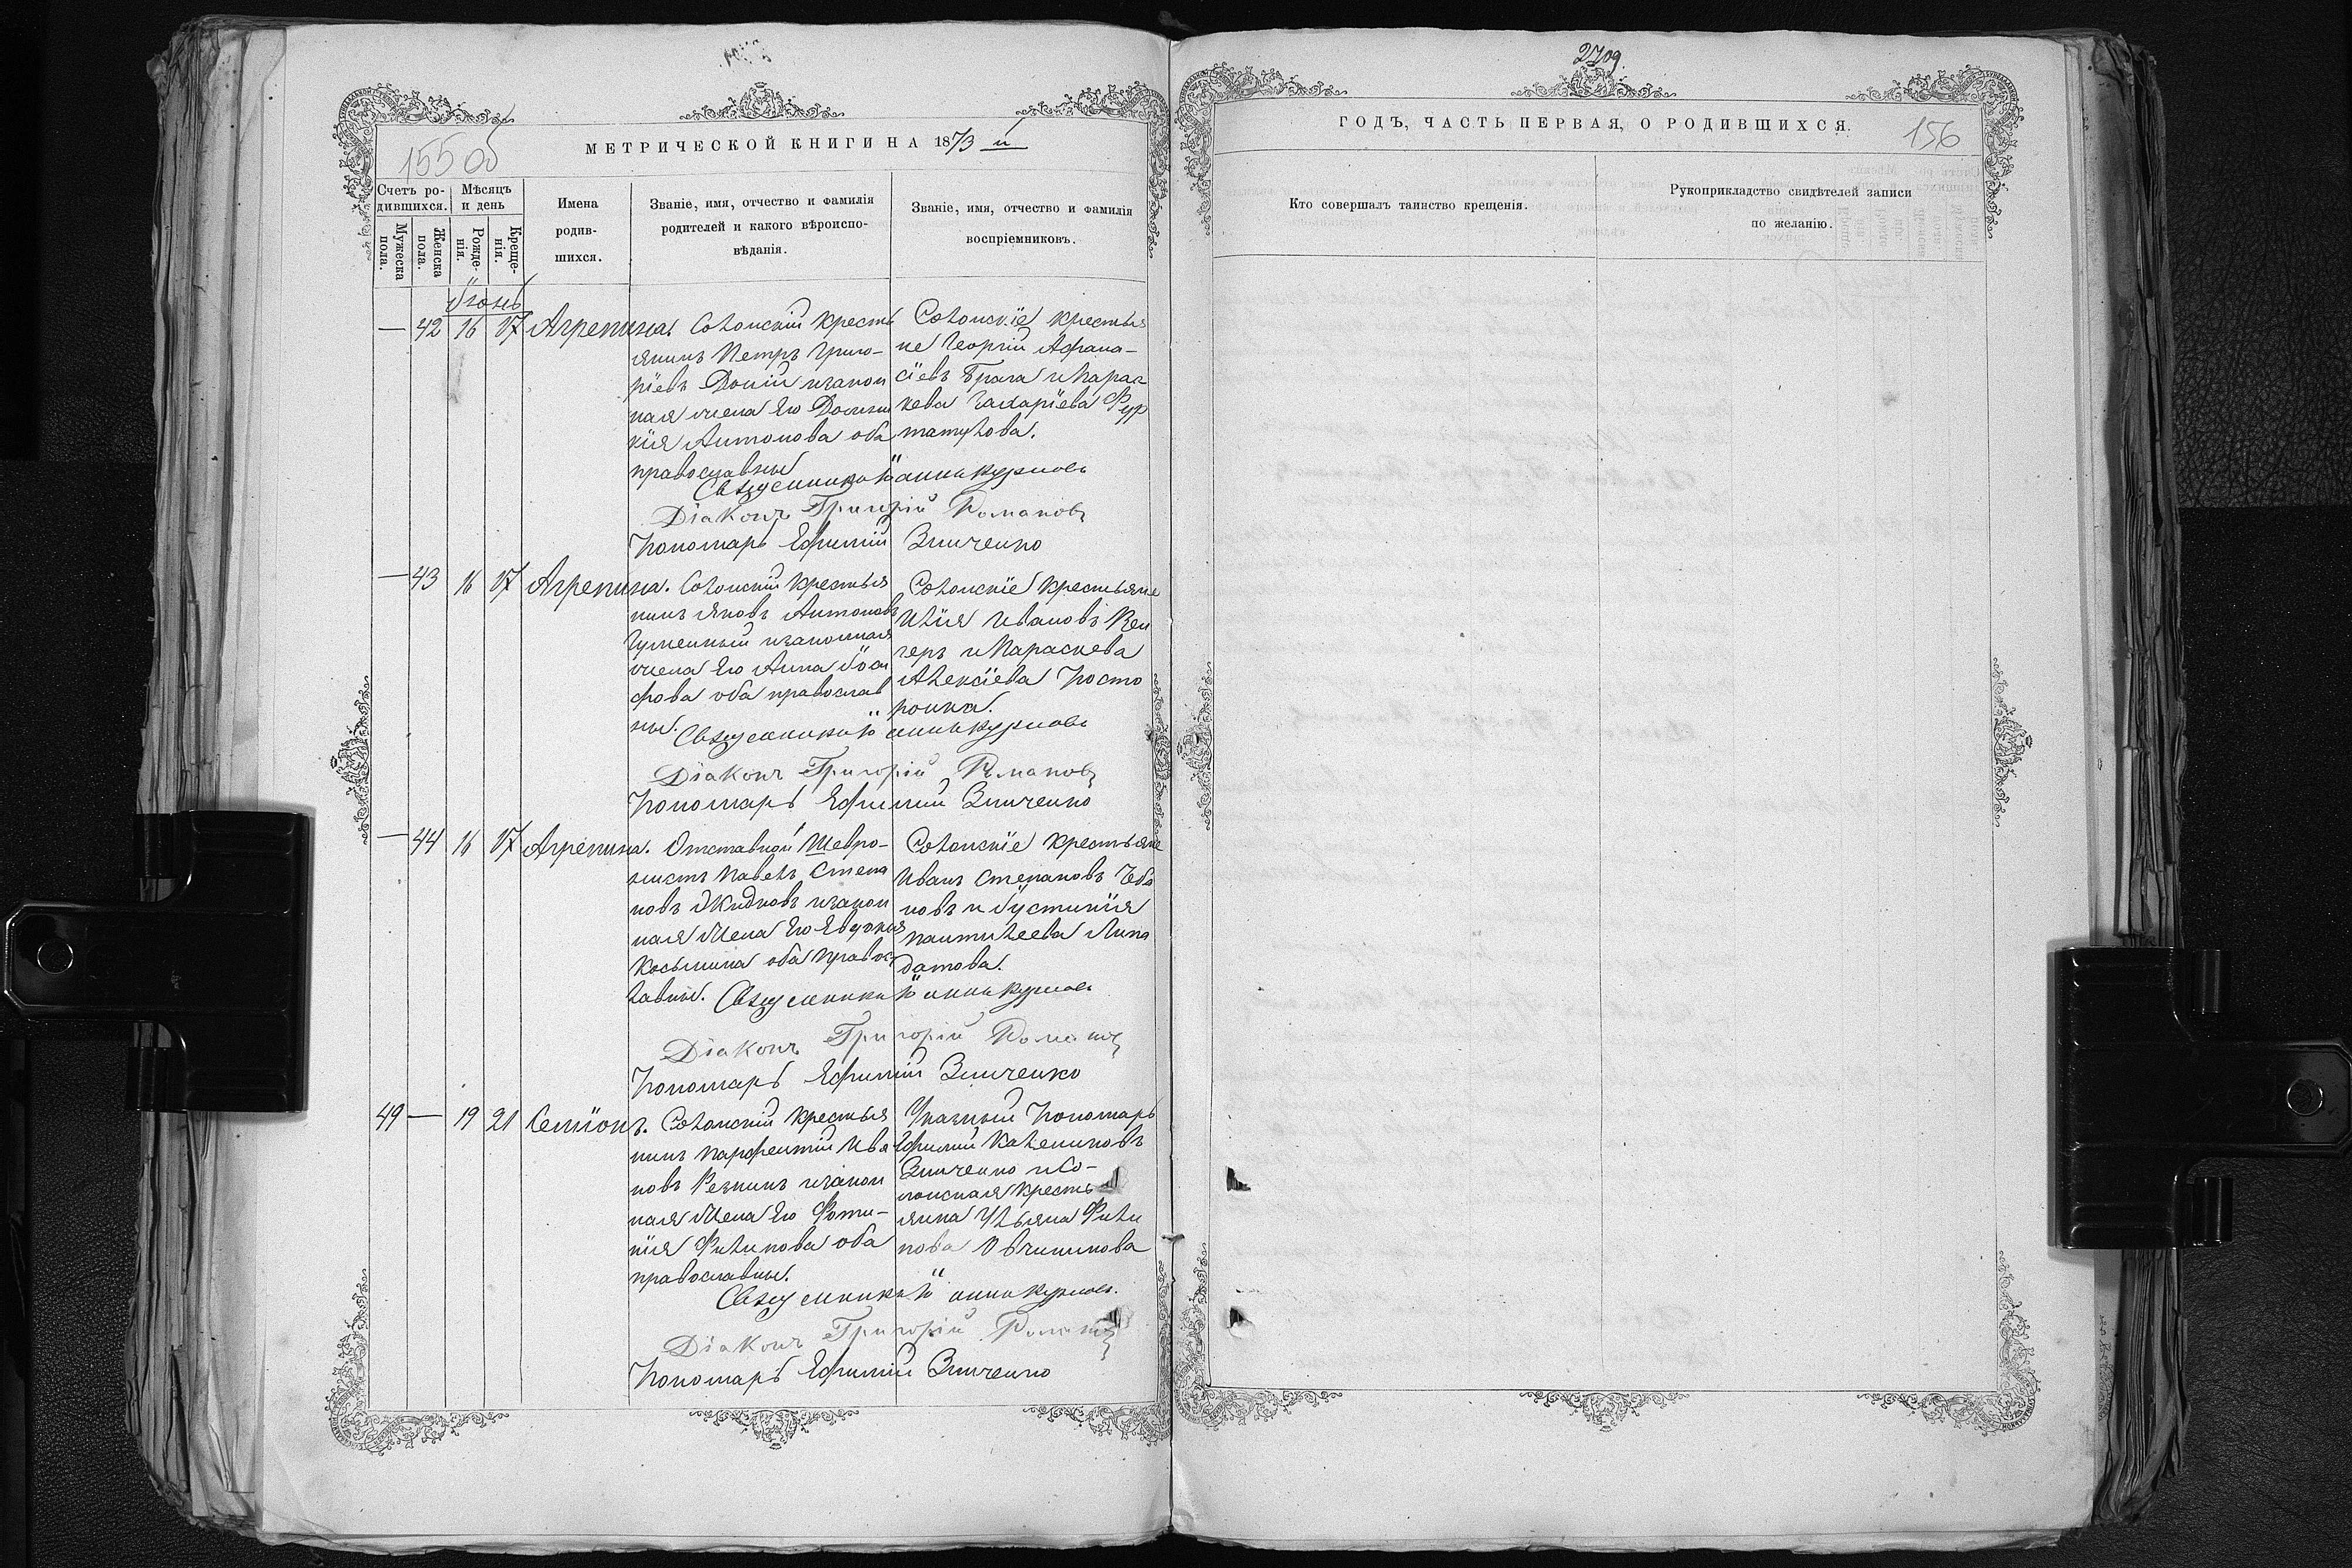 155 об
МЕТРИЧЕСКОЙ КНИГИ НА 1873 й
Счетъ ро-
дившихся.
Мѣсяцъ
и день
Мужеска
пола.
Женска
пола.
Рожде-
нія.
Креще-
нія.
Имена
родив-
шихся.
Званіе, имя, отчество и фамилія
родителей и какого вѣроиспо-
вѣданія.
Званіе, имя, отчество и фамилія
воспріемниковъ.
Іюнь
— 42 16 17 Агрепина.
крестьянинъ Петръ Григо-
ріевъ Доній и закон
ная жена его
кія Антонова оба
православны
крестья
не Георгій Афана-
сіевъ Брага и Парас
кева Захаріева Фур
татулова.
Священникъ Іоаннъ
Діаконъ Григорій Романовъ
Пономарь Ефимій Зинченко
— 43 16 17 Агрепина.
крестья
нинъ Яковъ Антоновъ
и законная
жена его Анна Іоси
фова оба православ
ны.
крестьяне
Илія Ивановъ Вен
геръ и Параскева
Алексіева Посто
ронка.
Священникъ Іоаннъ
Діаконъ Григорій Романовъ
Пономарь Ефимій Зинченко
— 44 16 17 Агрепина.
Отставной Шевро-
нистъ Павелъ Степа
новъ и закон
ная жена его Евдокія
Косьмина оба правос
лавны.
крестьяне
Иванъ Степановъ Чеба
новъ и Іустинія
Пантилеева Липа
датова.
Священникъ Іоаннъ
Діаконъ Григорій Романовъ
Пономарь Ефимій Зинченко
49 — 19 21 Симіонъ.
крестья
нинъ Парфентій Ива
новъ Резникъ и закон
ная жена его Фоти-
нія Филипова оба
православны.
Указный Пономарь
Ефимій Калениковъ
Зинченко и
кресть
янка Ульяна Фили
пова Овчинникова
Священникъ Іоаннъ
Діаконъ Григорій Романовъ
Пономарь Ефимій Зинченко
2709.
ГОДЪ, ЧАСТЬ ПЕРВАЯ, О РОДИВШИХСЯ.
156
Кто совершалъ таинство крещенія.
Рукоприкладство свидѣтелей записи
по желанію.